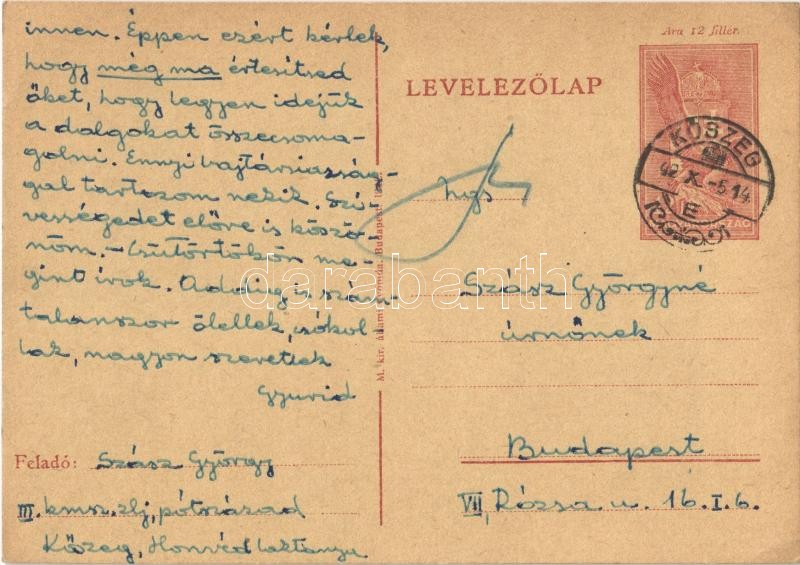 innen. Éppen ezért kérlek,
hogy még ma értesítsed
őket, hogy legyen idejük
a dolgokat összecsoma-
golni. Ennyi bajtársiasság-
gal tartozom nekik. Szí-
vességedet előre is köszö-
nöm. – Csütörtökön me-
gint írok. Addig is szám-
talanszor ölellek, csókol-
lak, nagyon szeretlek
Gyurid
Feladó: Szász György
III. kmsz. zlj. pótszázad
Kőszeg, Honvéd laktanya
M. kir. állami nyomda, Budapest
Ára 12 fillér.
LEVELEZŐLAP
KŐSZEG
42 X. -5. 14
E
Ngs
Szász Györgyné
úrnőnek
Budapest
VII, Rózsa u. 16. I. 6.
darabanth.com